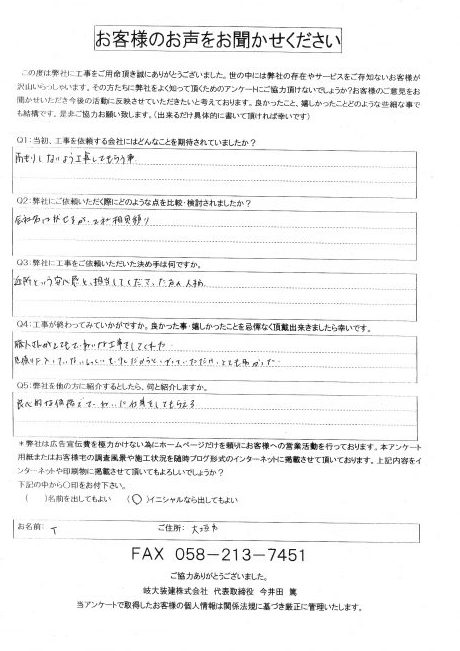 お客様のお声をお聞かせください
この度は弊社に工事をご用命頂き誠にありがとうございました。世の中には弊社の存在やサービスをご存知ないお客様が
沢山いらっしゃいます。その方たちに弊社をよく知って頂くためのアンケートにご協力頂けないでしょうか?お客様のご意見をお
聞かせいただき今後の活動に反映させていただきたいと考えております。良かったこと、嬉しかったことどのような些細な事で
も結構です。是非ご協力お願い致します。(出来るだけ具体的に書いて頂ければ幸いです)
Q1:当初、工事を依頼する会社にはどんなことを期待されていましたか?
雨もりしないよう工事してもらう事
Q2:弊社にご依頼いただく際にどのような点を比較・検討されましたか?
会社名は 相見積り
Q3:弊社に工事をご依頼いただいた決め手は何ですか。
近所という安心感と、担当してくださった方の人柄
Q4:工事が終わってみていかがですか。良かった事・嬉しかったことを忌憚なく頂戴出来ましたら幸いです。
職人さんがとてもていねいな工事をしてくれた
とても助かった
Q5:弊社を他の方に紹介するとしたら、何と紹介しますか。
良心的な価格でていねいに仕事をしてもらえる
*弊社は広告宣伝費を極力かけない為にホームページだけを頼りにお客様への営業活動を行っております。本アンケート
用紙またはお客様宅の調査風景や施工状況を随時ブログ形式のインターネットに掲載させて頂いております。上記内容をイ
ンターネットや印刷物に掲載させて頂いてもよろしいでしょうか?
下記の中から〇印をお付下さい。
( )名前を出してもよい (〇)イニシャルなら出してもよい
お名前: T ご住所: 大垣市
FAX 058-213-7451
ご協力ありがとうございました。
岐大装建株式会社 代表取締役 今井田 篤
当アンケートで取得したお客様の個人情報は関係法規に基づき厳正に管理いたします。